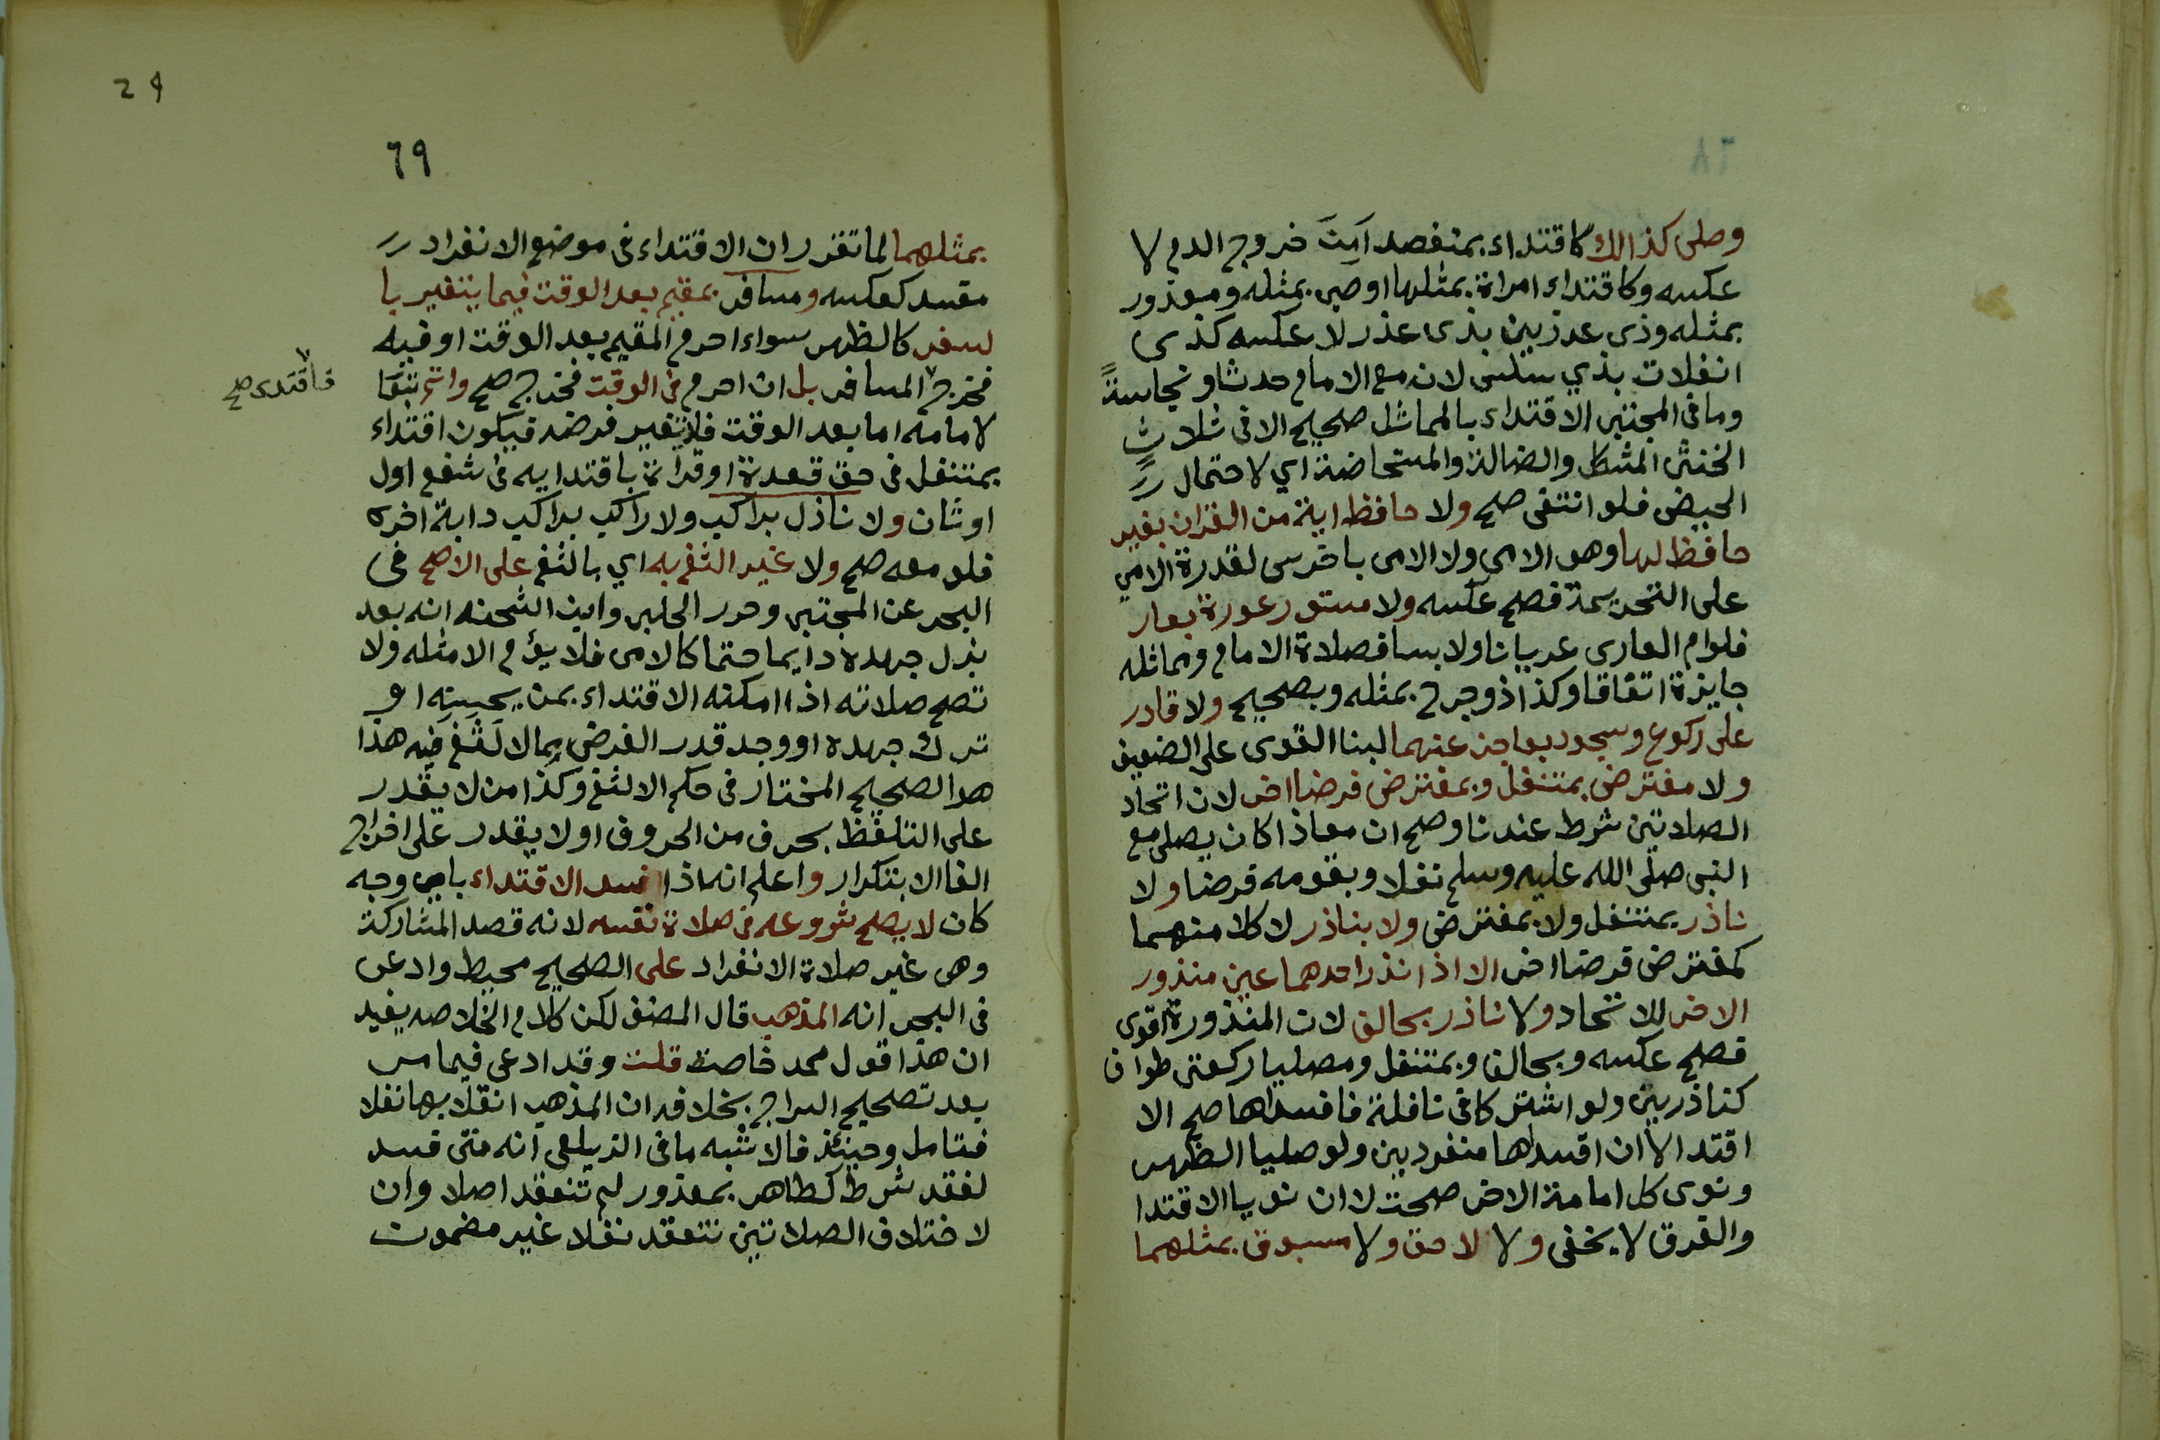 ٦٨
وصلى كذالك كاقتداء بمتفصد آمِنَ خروج الدم لا
عكسه وكاقتداء امراة بمثلها اوصبى بمثله ومعذور
بمثله وذى عذرين بذى عذر لا عكسه كذى
انفلات بذي سلس لان مع الامام حدثا ونجاسةً
ومافى المجتبى الاقتداء بالمماثل صحيح الا فى ثلاث
الخنثى المشكل والضالة والمستحاضة اي لاحتمال
الحيض فلو انتفى صح ولا حافظ اية من القران بغير
حافظ لها وهو الامى ولا الامى باخرس لقدرة الامي
على التحريمة فصح عكسه ولا مستور عورة بعار
فلو ام العارى عريانا ولابسا فصلاة الامام ومماثله
جايزة اتفاقا وكذا ذوجرح بمثله وبصحيح ولا قادر
على ركوع وسجود بعاجز عنهما لبنا القوى على الضعيف
ولا مفترض بمتنفل وبمفترض فرضا اخر لان اتحاد
الصلاتين شرط عندنا وصح ان معاذا كان يصلى مع
النبى صلى الله عليه وسلم نفلا وبقومه فرضا ولا
ناذر بمتنفل ولا بمفترض ولا بناذر لا كلا منهما
كمفترض فرضا اخر الا اذا نذر احدهما عين منذور
الاخر للاتحاد ولا ناذر بحالف لان المنذورة اقوى
فصح عكسه وبحالف وبمتنفل ومصليا ركعتى طواف
كناذرين ولو اشتركا فى نافلة فافسداها صح الا
اقتدا لا ان افسداها منفردين ولو صليا الظهر
ونوى كل امامة الاخر صحت لا ان نويا الاقتدا
والفرق لا يخفى ولا لاحق ولا مسبوق بمثلهما
29
٦٩
بمثلهما لما تقرر ان الاقتداء فى موضع الانفراد
مفسد كعكسه ومسافر بمقيم بعد الوقت فيما يتغير با
لسفر كالظهر سواء احرم المقيم بعد الوقت او فيه
فخرج المسافر بل ان احرم فى الوقت فخرج صح واتم تبعا
فاقتدى صح
لامامه اما بعد الوقت فلا يتغير فرضه فيكون اقتداء
بمتنفل فى حق قعدة او قراءة باقتدايه فى شفع اول
او ثان ولا نازل براكب ولا راكب براكب دابة اخرى
فلو معه صح ولا غير الثغ به اي بالثغ على الاصح فى
البحر عن المجتبى وحرر الحلبى وابن الشحنه انه بعد
بذل جهده دايما حتما كالامى فلا يؤم الا مثله ولا
تصح صلاته اذا امكنه الاقتداء بمن يحسنه او
ترك جهده او وجد قدر الفرض بما لا لثغ فيه هذا
هو الصحيح المختار فى حكم الالثغ وكذا من لا يقدر
على التلفظ بحرف من الحروف او لا يقدر على اخراج
الفا الا بتكرار واعلم انه اذا فسد الاقتداء باي وجه
كان لا يصح شروعه فى صلاة نفسه لانه قصد المشاركة
وهى غير صلاة الانفراد على الصحيح محيط وادعى
فى البحر انه المذهب قال المصنف لكن كلام الخلاصه يفيد
ان هذا قول محمد خاصة قلت وقد ادعى فيما مر
بعد تصحيح السراج بخلافه ان المذهب انقلابها نفلا
فتامل وحينئذ فالاشبه مافى الزيلعى انه متى فسد
لفقد شرط كطاهر بمعذور لم تنعقد اصلا وان
لاختلاف الصلاتين تنعقد نفلا غير مضمون